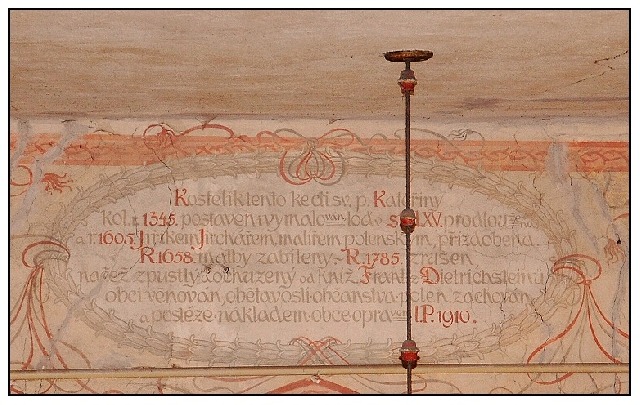 Kostelík tento ke cti sv. p. Kateřiny
kol. r. 1345. postaven, vymalován. kol. st. XV. prodloužen
a r. 1605 Jirchářem, malířem polenským, přizdobena.
R 1658 malby zabíleny. R. 1785. zrušen
načež zpustlý zakoupený od kníž. Frant. z Dietrichsteinu
obci věnován, obětavostí občanstva polen. zachován
a posléze nákladem obce opraven l.P. 1910.